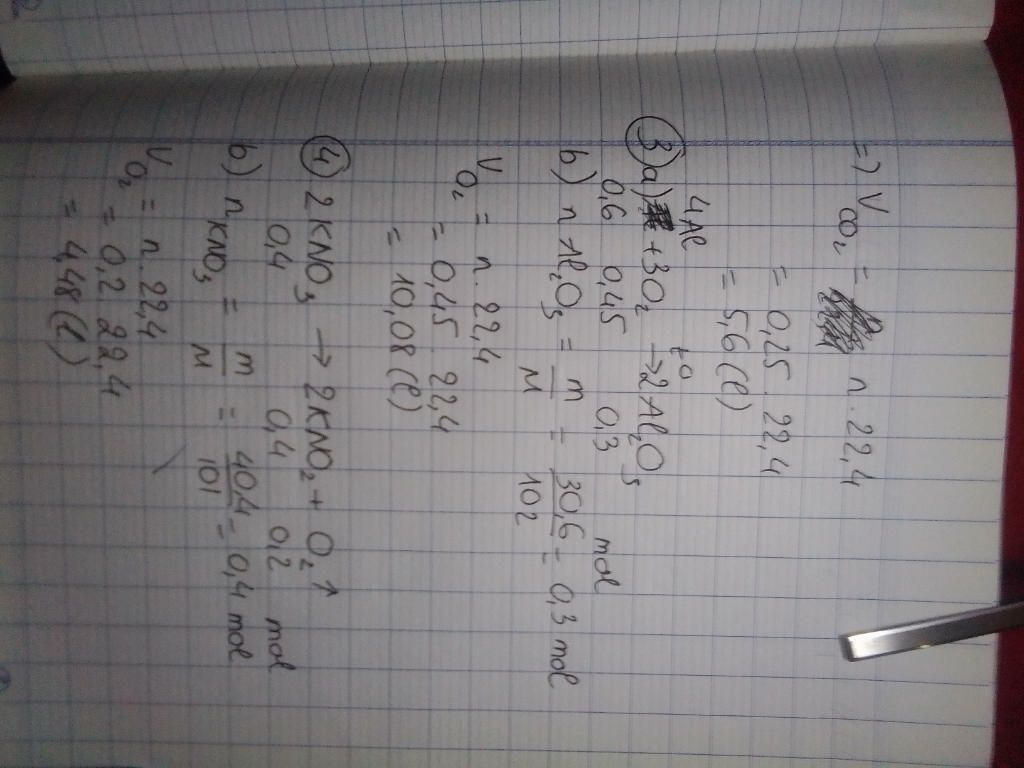 =) V CO2 = n . 22,4
= 0,25 . 22,4
= 5,6 (l)
3 a) 4Al + 3O2 t0→ 2Al2O3
0,6 0,45 0,3 mol
b) n Al2O3 = m/M = 30,6/102 = 0,3 mol
V O2 = n . 22,4
= 0,45 . 22,4
= 10,08 (l)
4) 2KNO3 → 2KNO2 + O2 ↑
0,4 0,4 0,2 mol
b) n KNO3 = m/M = 40,4/101 = 0,4 mol
V O2 = n . 22,4
= 0,2 . 22,4
= 4,48 (l)